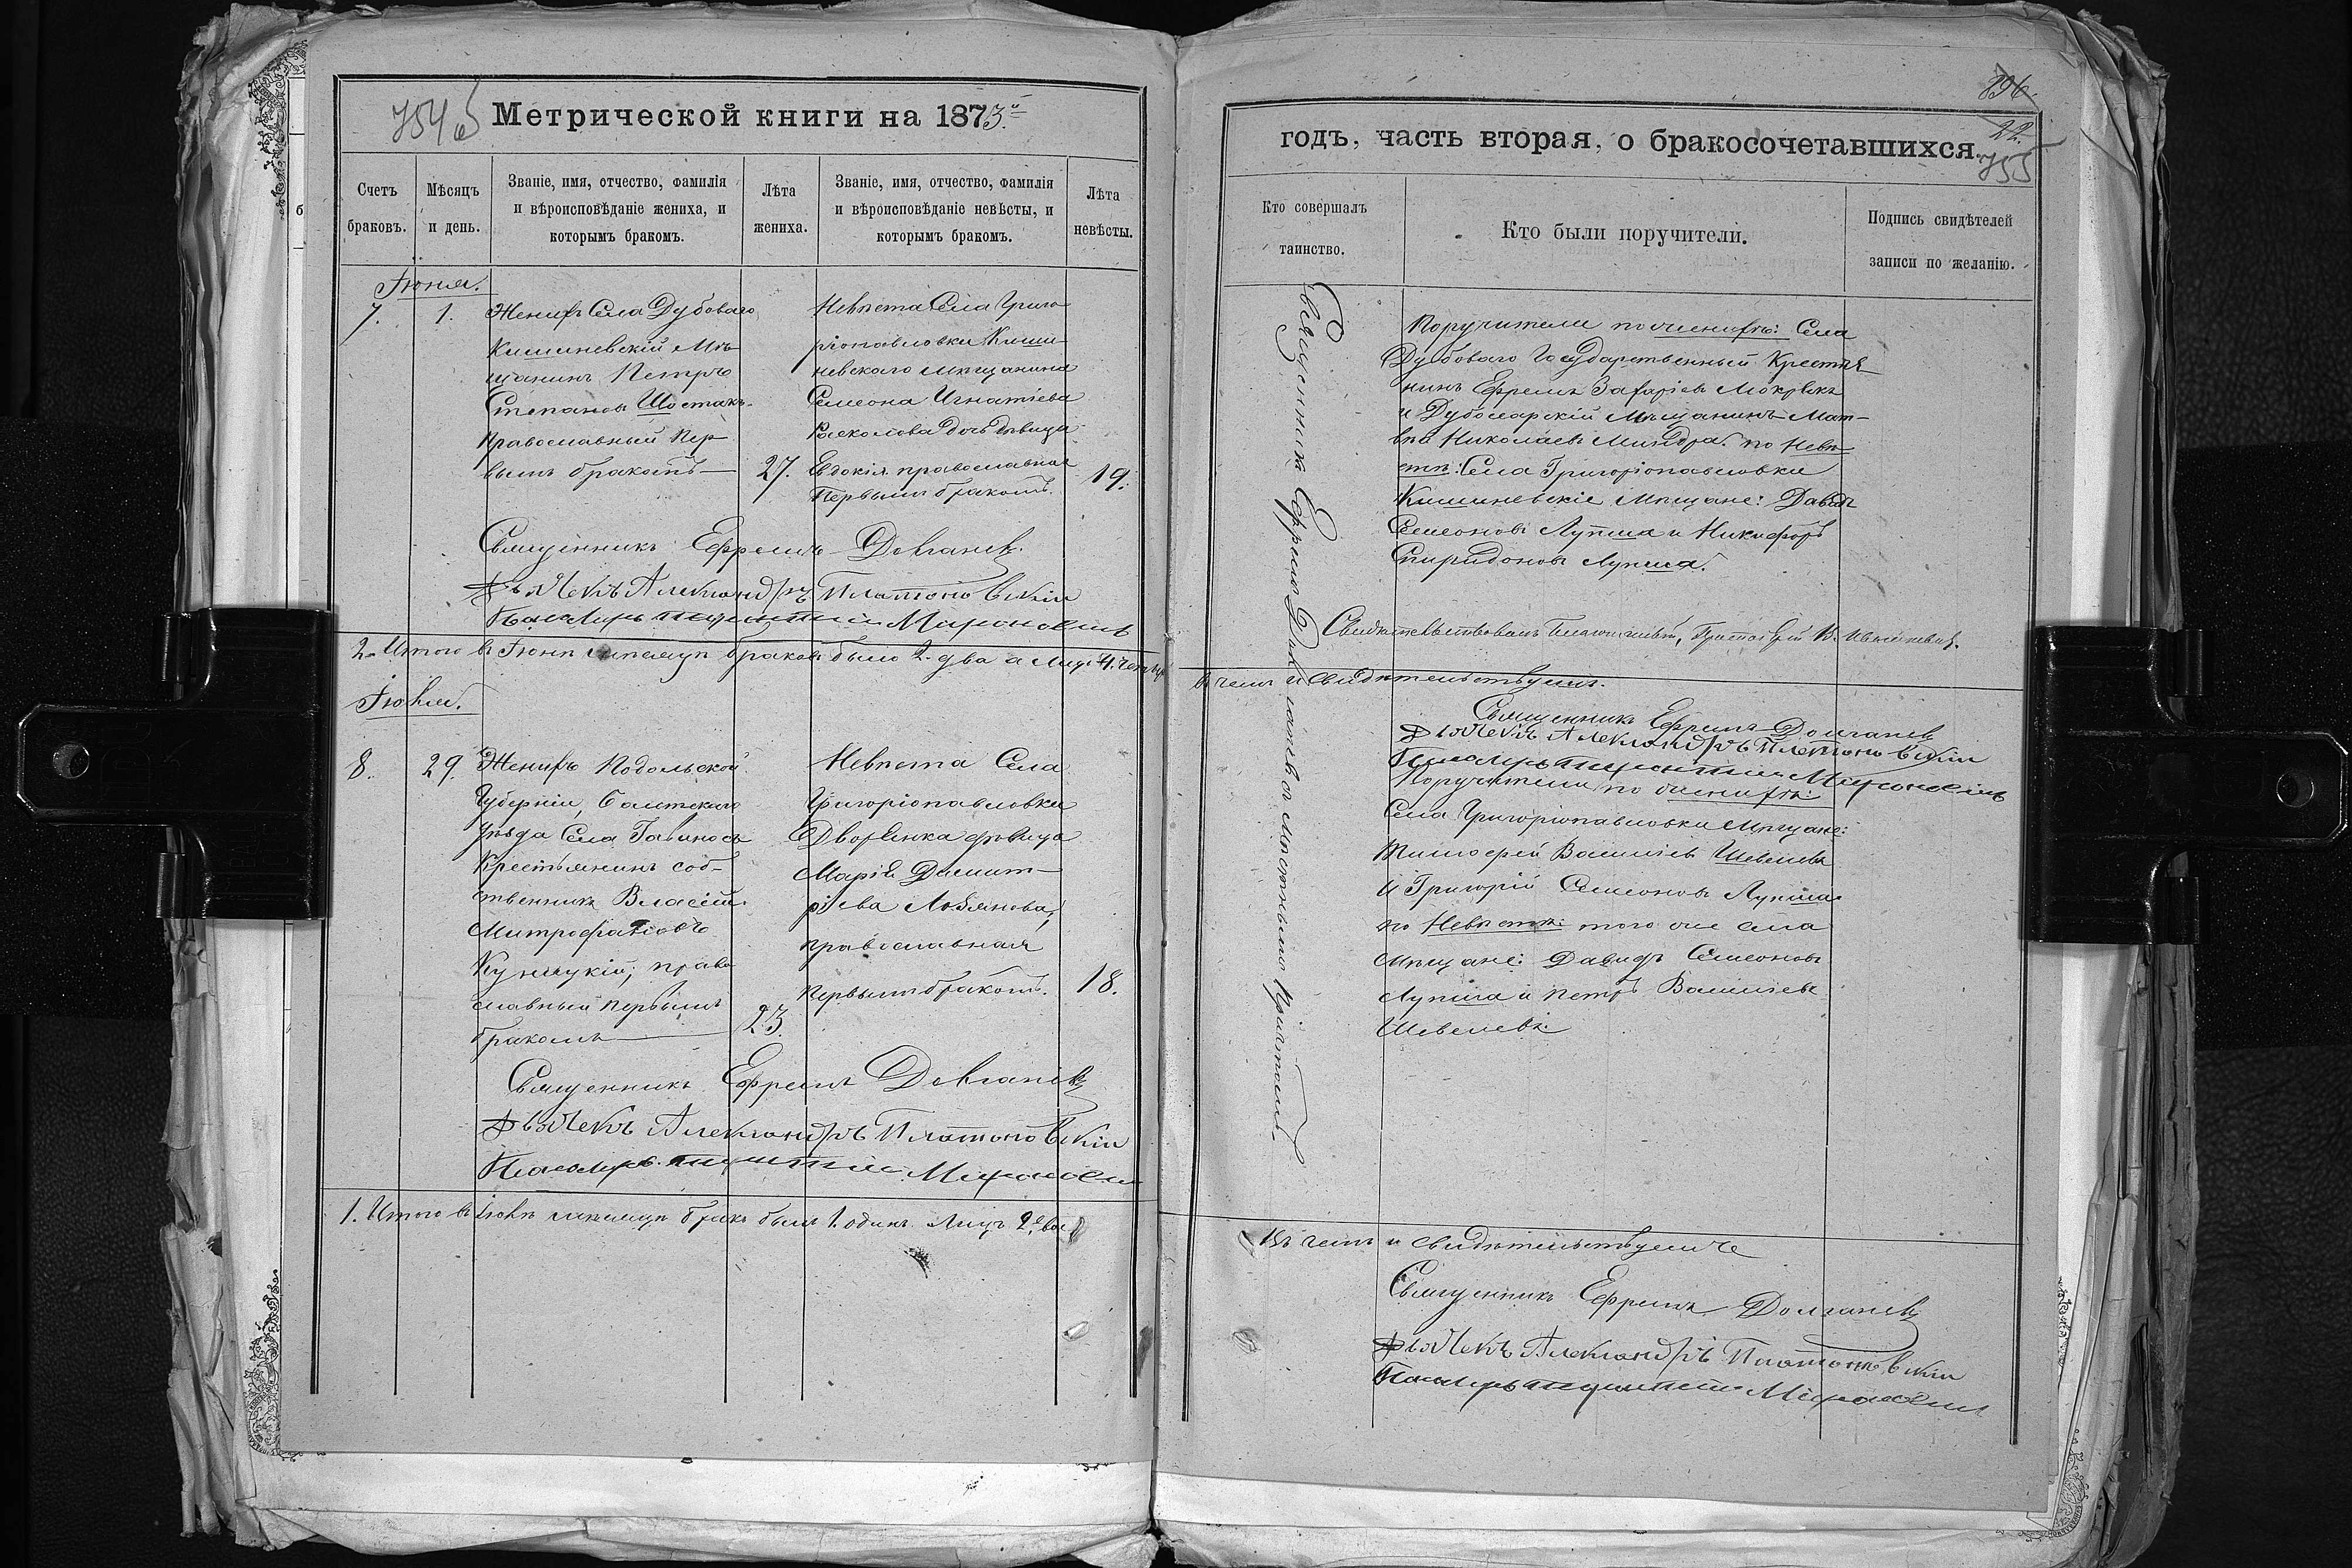 754
Метрической книги на 1873й
Счетъ браковъ.
Мѣсяцъ и день.
Званіе, имя, отчество, фамилія
и вѣроисповѣданіе жениха, и
которымъ бракомъ.
Лѣта жениха.
Званіе, имя, отчество, фамилія
и вѣроисповѣданіе невѣсты, и
которымъ бракомъ.
Лѣта невѣсты.
Іюня.
7.
1.
Женихъ Села Дубоваго
Кишиневскій Мѣ-
щанинъ Петръ
Степановъ Шостакъ
православный пер-
вымъ бракомъ
27.
Невѣста Села Григо
ріопавловки Киши-
невскаго мѣщанина
Семеона Игнатіева
дочь дѣвица
Евдокія православная
первымъ бракомъ.
19.
Священникъ Ефремъ
Дьячекъ Александръ Платоновскій
Пономарь
2. Итого въ Іюнѣ мѣсяцѣ браковъ было 2. два а лицъ 4. четыре
Іюль.
8.
29.
Женихъ Подольской
Губерніи, Балтскаго
уѣзда Села
Крестьянинъ соб-
ственникъ Власій
Митрофановъ
право
славный первымъ
бракомъ
23.
Невѣста Села
Григоріопавловки
Дворянка дѣвица
Марія Димит-
ріева
православная
первымъ бракомъ.
18.
Священникъ Ефремъ
Дьячекъ Александръ Платоновскій
Пономарь
1. Итого въ Іюлѣ мѣсяцѣ бракъ былъ 1. одинъ лицъ 2. два
896.
22.
755
годъ, часть вторая, о бракосочетавшихся.
Кто совершалъ
таинство.
Кто были поручители.
Подпись свидѣтелей
записи по желанію.
Священникъ Ефремъ съ мѣстнымъ причтомъ.
Поручители по женихѣ: Села
Дубоваго Государственный Крестья
нинъ Ефремъ Захаріевъ
и Дубосарскій Мѣщанинъ Мат-
вѣй Николаевъ Миндра. по Невѣ
стѣ: Села Григоріопавловки
Кишиневскіе Мѣщане: Давидъ
Семеоновъ Лупша и Никифоръ
Спиридоновъ Лупша.
Свидѣтельствовалъ Благочинный,
въ чемъ и свидѣтельствуемъ.
Священникъ Ефремъ
Дьячекъ Александръ Платоновскій
Пономарь
Поручители по женихѣ:
Села Григоріопавловки Мѣщане:
Тимофей Васильевъ Шевелевъ
и Григорій Семеоновъ Лупша
по Невѣстѣ: того же села
Мѣщане: Давидъ Семеоновъ
Лупша и Петръ Васильевъ
Шевелевъ
Въ чемъ и свидѣтельствуемъ
Священникъ Ефремъ
Дьячекъ Александръ Платоновскій
Пономарь